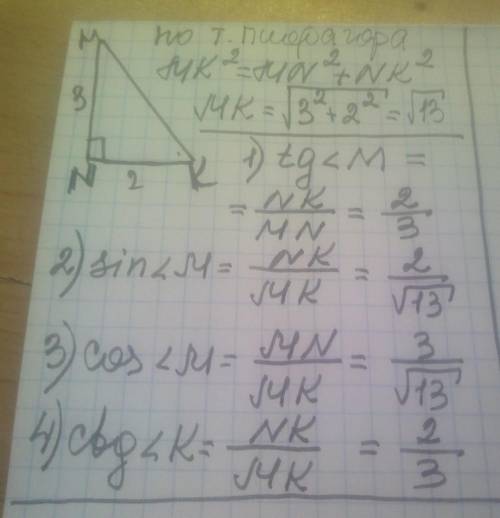 по т. пифагора
M
MK² = MN² + NK²
3
MK = √(3² + 2²) = √13
N 2 K
1) tg < M =
= NK/MN = 2/3
2) sin < M = NK/MK = 2/√13
3) cos < M = MN/MK = 3/√13
4) ctg < K = NK/MK = 2/3